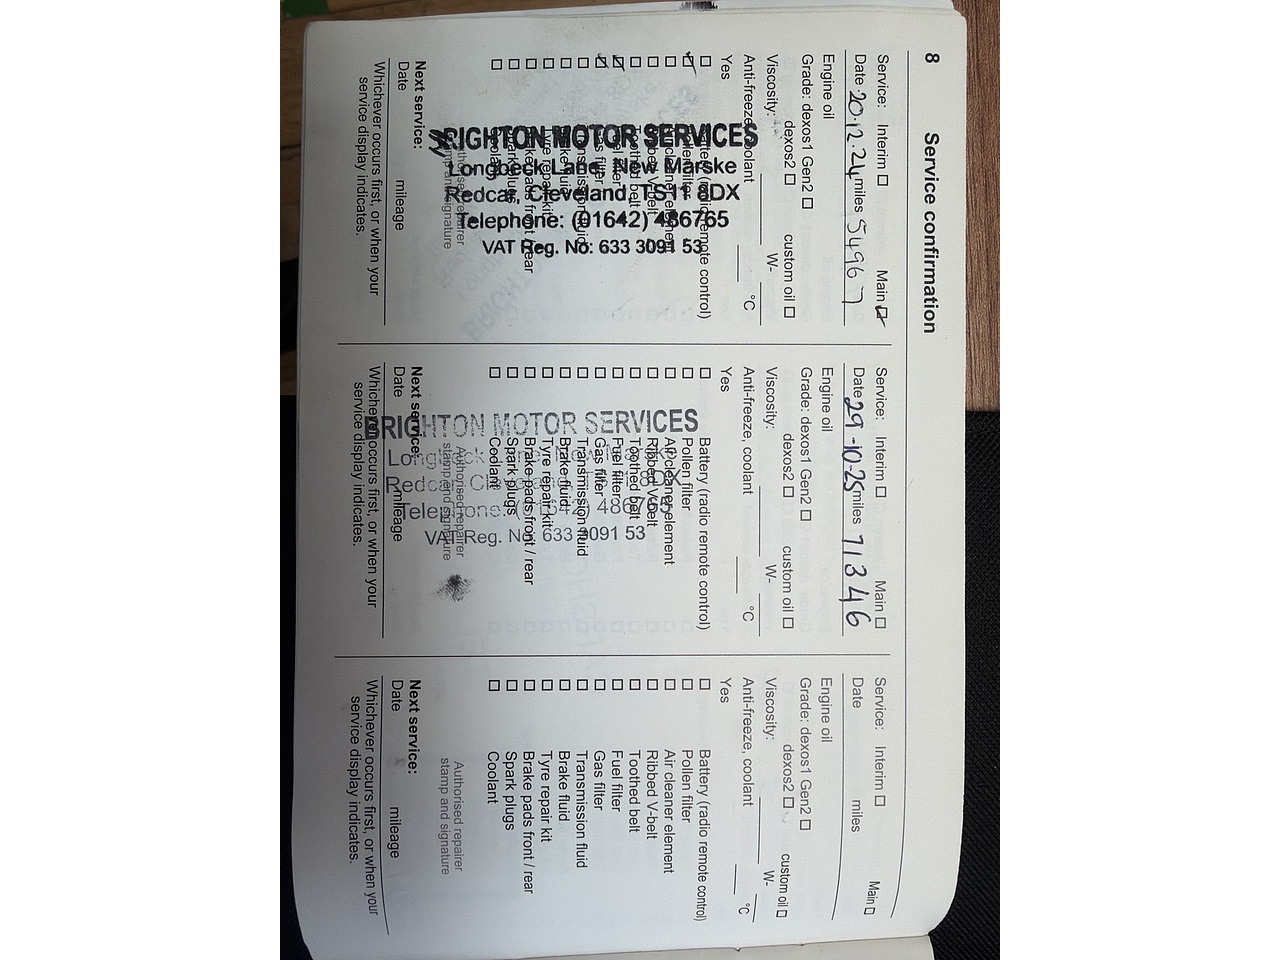 8 Service confirmation
Service: Interim ☐ Main ☑
Date 20.12.24 miles 54967
Engine oil
Grade: dexos1 Gen2 ☐
dexos2 ☐ custom oil ☐
Viscosity: W-
Anti-freeze, coolant °C
Yes
☐ Battery (radio remote control)
☑ Pollen filter
☐ Air cleaner element
☐ Ribbed V-belt
☐ Toothed belt
☑ Fuel filter
☑ Gas filter
☐ Transmission fluid
☐ Brake fluid
☐ Tyre repair kit
☐ Brake pads front / rear
☐ Spark plugs
☐ Coolant
Authorised repairer
stamp and signature
BRIGHTON MOTOR SERVICES
Longbeck Lane, New Marske
Redcar, Cleveland, TS11 8DX
Telephone: (01642) 486765
VAT Reg. No: 633 3091 53
Next service:
Date mileage
Whichever occurs first, or when your
service display indicates.
Service: Interim ☐ Main ☐
Date 29-10-25 miles 71346
Engine oil
Grade: dexos1 Gen2 ☐
dexos2 ☐ custom oil ☐
Viscosity: W-
Anti-freeze, coolant °C
Yes
☐ Battery (radio remote control)
☐ Pollen filter
☐ Air cleaner element
☐ Ribbed V-belt
☐ Toothed belt
☐ Fuel filter
☐ Gas filter
☐ Transmission fluid
☐ Brake fluid
☐ Tyre repair kit
☐ Brake pads front / rear
☐ Spark plugs
☐ Coolant
Authorised repairer
stamp and signature
BRIGHTON MOTOR SERVICES
Longbeck
Redcar, Cleveland, 8DX
Telephone: (01642) 486765
VAT Reg. No: 633 3091 53
Next service:
Date mileage
Whichever occurs first, or when your
service display indicates.
Service: Interim ☐ Main ☐
Date miles
Engine oil
Grade: dexos1 Gen2 ☐
dexos2 ☐ custom oil ☐
Viscosity: W-
Anti-freeze, coolant °C
Yes
☐ Battery (radio remote control)
☐ Pollen filter
☐ Air cleaner element
☐ Ribbed V-belt
☐ Toothed belt
☐ Fuel filter
☐ Gas filter
☐ Transmission fluid
☐ Brake fluid
☐ Tyre repair kit
☐ Brake pads front / rear
☐ Spark plugs
☐ Coolant
Authorised repairer
stamp and signature
Next service:
Date mileage
Whichever occurs first, or when your
service display indicates.